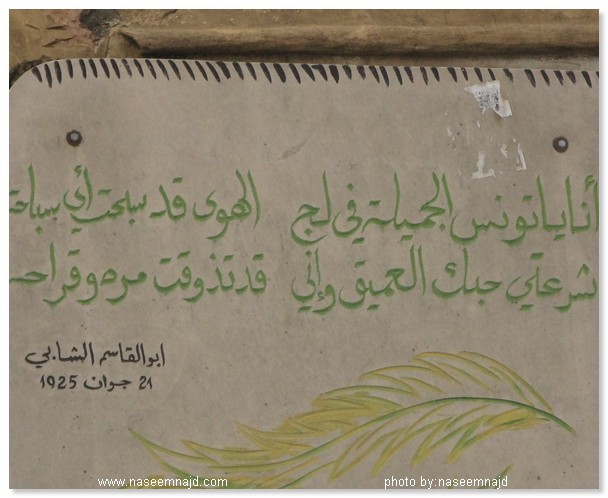 أنا يا تونس الجميلة في لج الهوى قد سبحت أي سباحة
شرعتي حبك العميق وإني قد تذوقت مره وقراحـ
ابوالقاسم الشابي
21 جوان 1925
www.naseemnajd.com photo by:naseemnajd